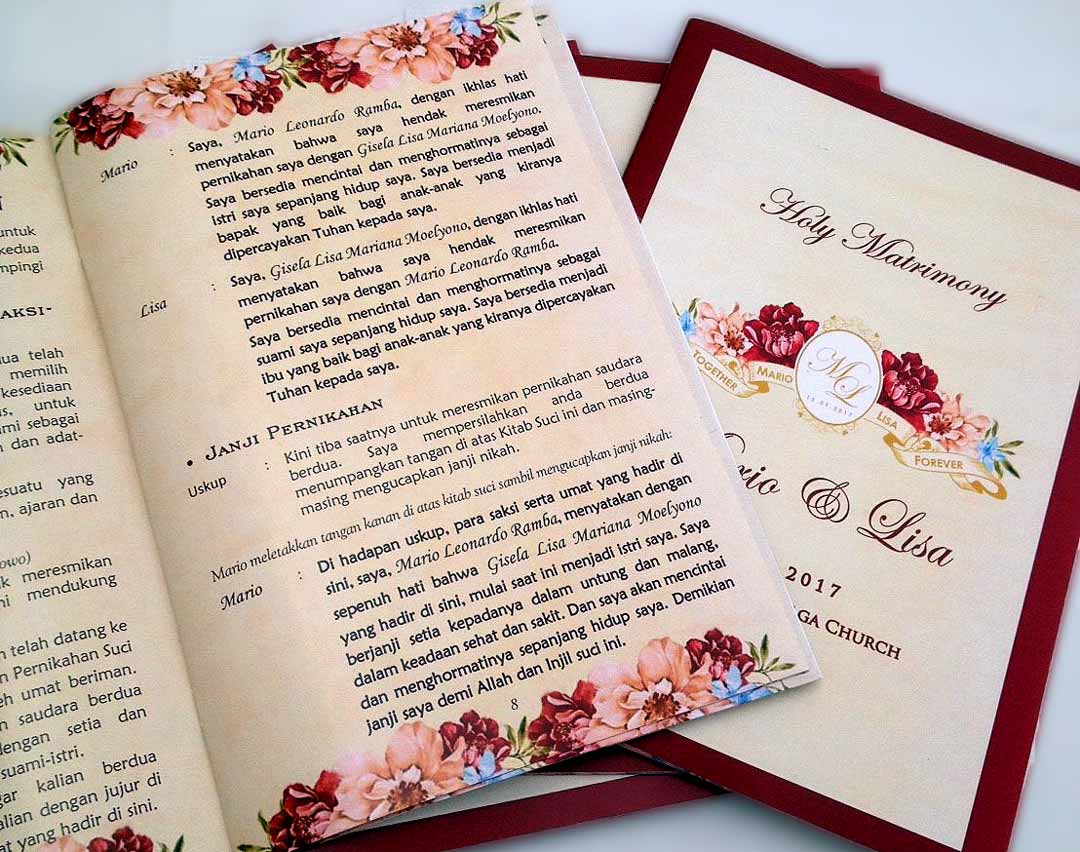 untuk
kedua
mpingi
AKSI-
lua telah
memilih
kesediaan
us, untuk
mi sebagai
n dan adat-
esuatu yang
n, ajaran dan
owo)
k meresmikan
ni mendukung
n telah datang ke
n Pernikahan Suci
eh umat beriman.
n saudara berdua
dengan setia dan
suami-istri.
gar kalian berdua
alian dengan jujur di
at yang hadir di sini.
Mario : Saya, Mario Leonardo Ramba, dengan ikhlas hati
menyatakan bahwa saya hendak meresmikan
pernikahan saya dengan Gisela Lisa Mariana Moelyono.
Saya bersedia mencintai dan menghormatinya sebagai
istri saya sepanjang hidup saya. Saya bersedia menjadi
bapak yang baik bagi anak-anak yang kiranya
dipercayakan Tuhan kepada saya.
Lisa : Saya, Gisela Lisa Mariana Moelyono, dengan ikhlas hati
menyatakan bahwa saya hendak meresmikan
pernikahan saya dengan Mario Leonardo Ramba.
Saya bersedia mencintai dan menghormatinya sebagai
suami saya sepanjang hidup saya. Saya bersedia menjadi
ibu yang baik bagi anak-anak yang kiranya dipercayakan
Tuhan kepada saya.
• JANJI PERNIKAHAN
Uskup : Kini tiba saatnya untuk meresmikan pernikahan saudara
berdua. Saya mempersilahkan anda berdua
menumpangkan tangan di atas Kitab Suci ini dan masing-
masing mengucapkan janji nikah.
Mario meletakkan tangan kanan di atas kitab suci sambil mengucapkan janji nikah:
Mario : Di hadapan uskup, para saksi serta umat yang hadir di
sini, saya, Mario Leonardo Ramba, menyatakan dengan
sepenuh hati bahwa Gisela Lisa Mariana Moelyono
yang hadir di sini, mulai saat ini menjadi istri saya. Saya
berjanji setia kepadanya dalam untung dan malang,
dalam keadaan sehat dan sakit. Dan saya akan mencintai
dan menghormatinya sepanjang hidup saya. Demikian
janji saya demi Allah dan Injil suci ini.
8
Holy Matrimony
TOGETHER MARIO ML LISA FOREVER
rio & Lisa
2017
GA CHURCH